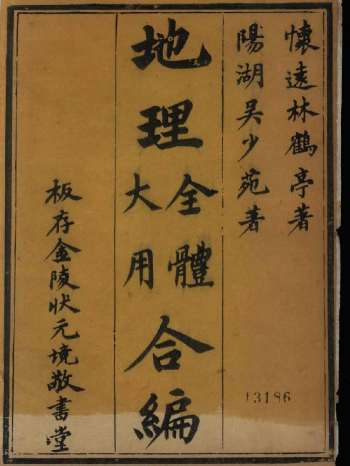 懷遠林鶴亭著
陽湖吳少苑著
地理
全體
大用
合編
板存金陵狀元境敬書堂
13186